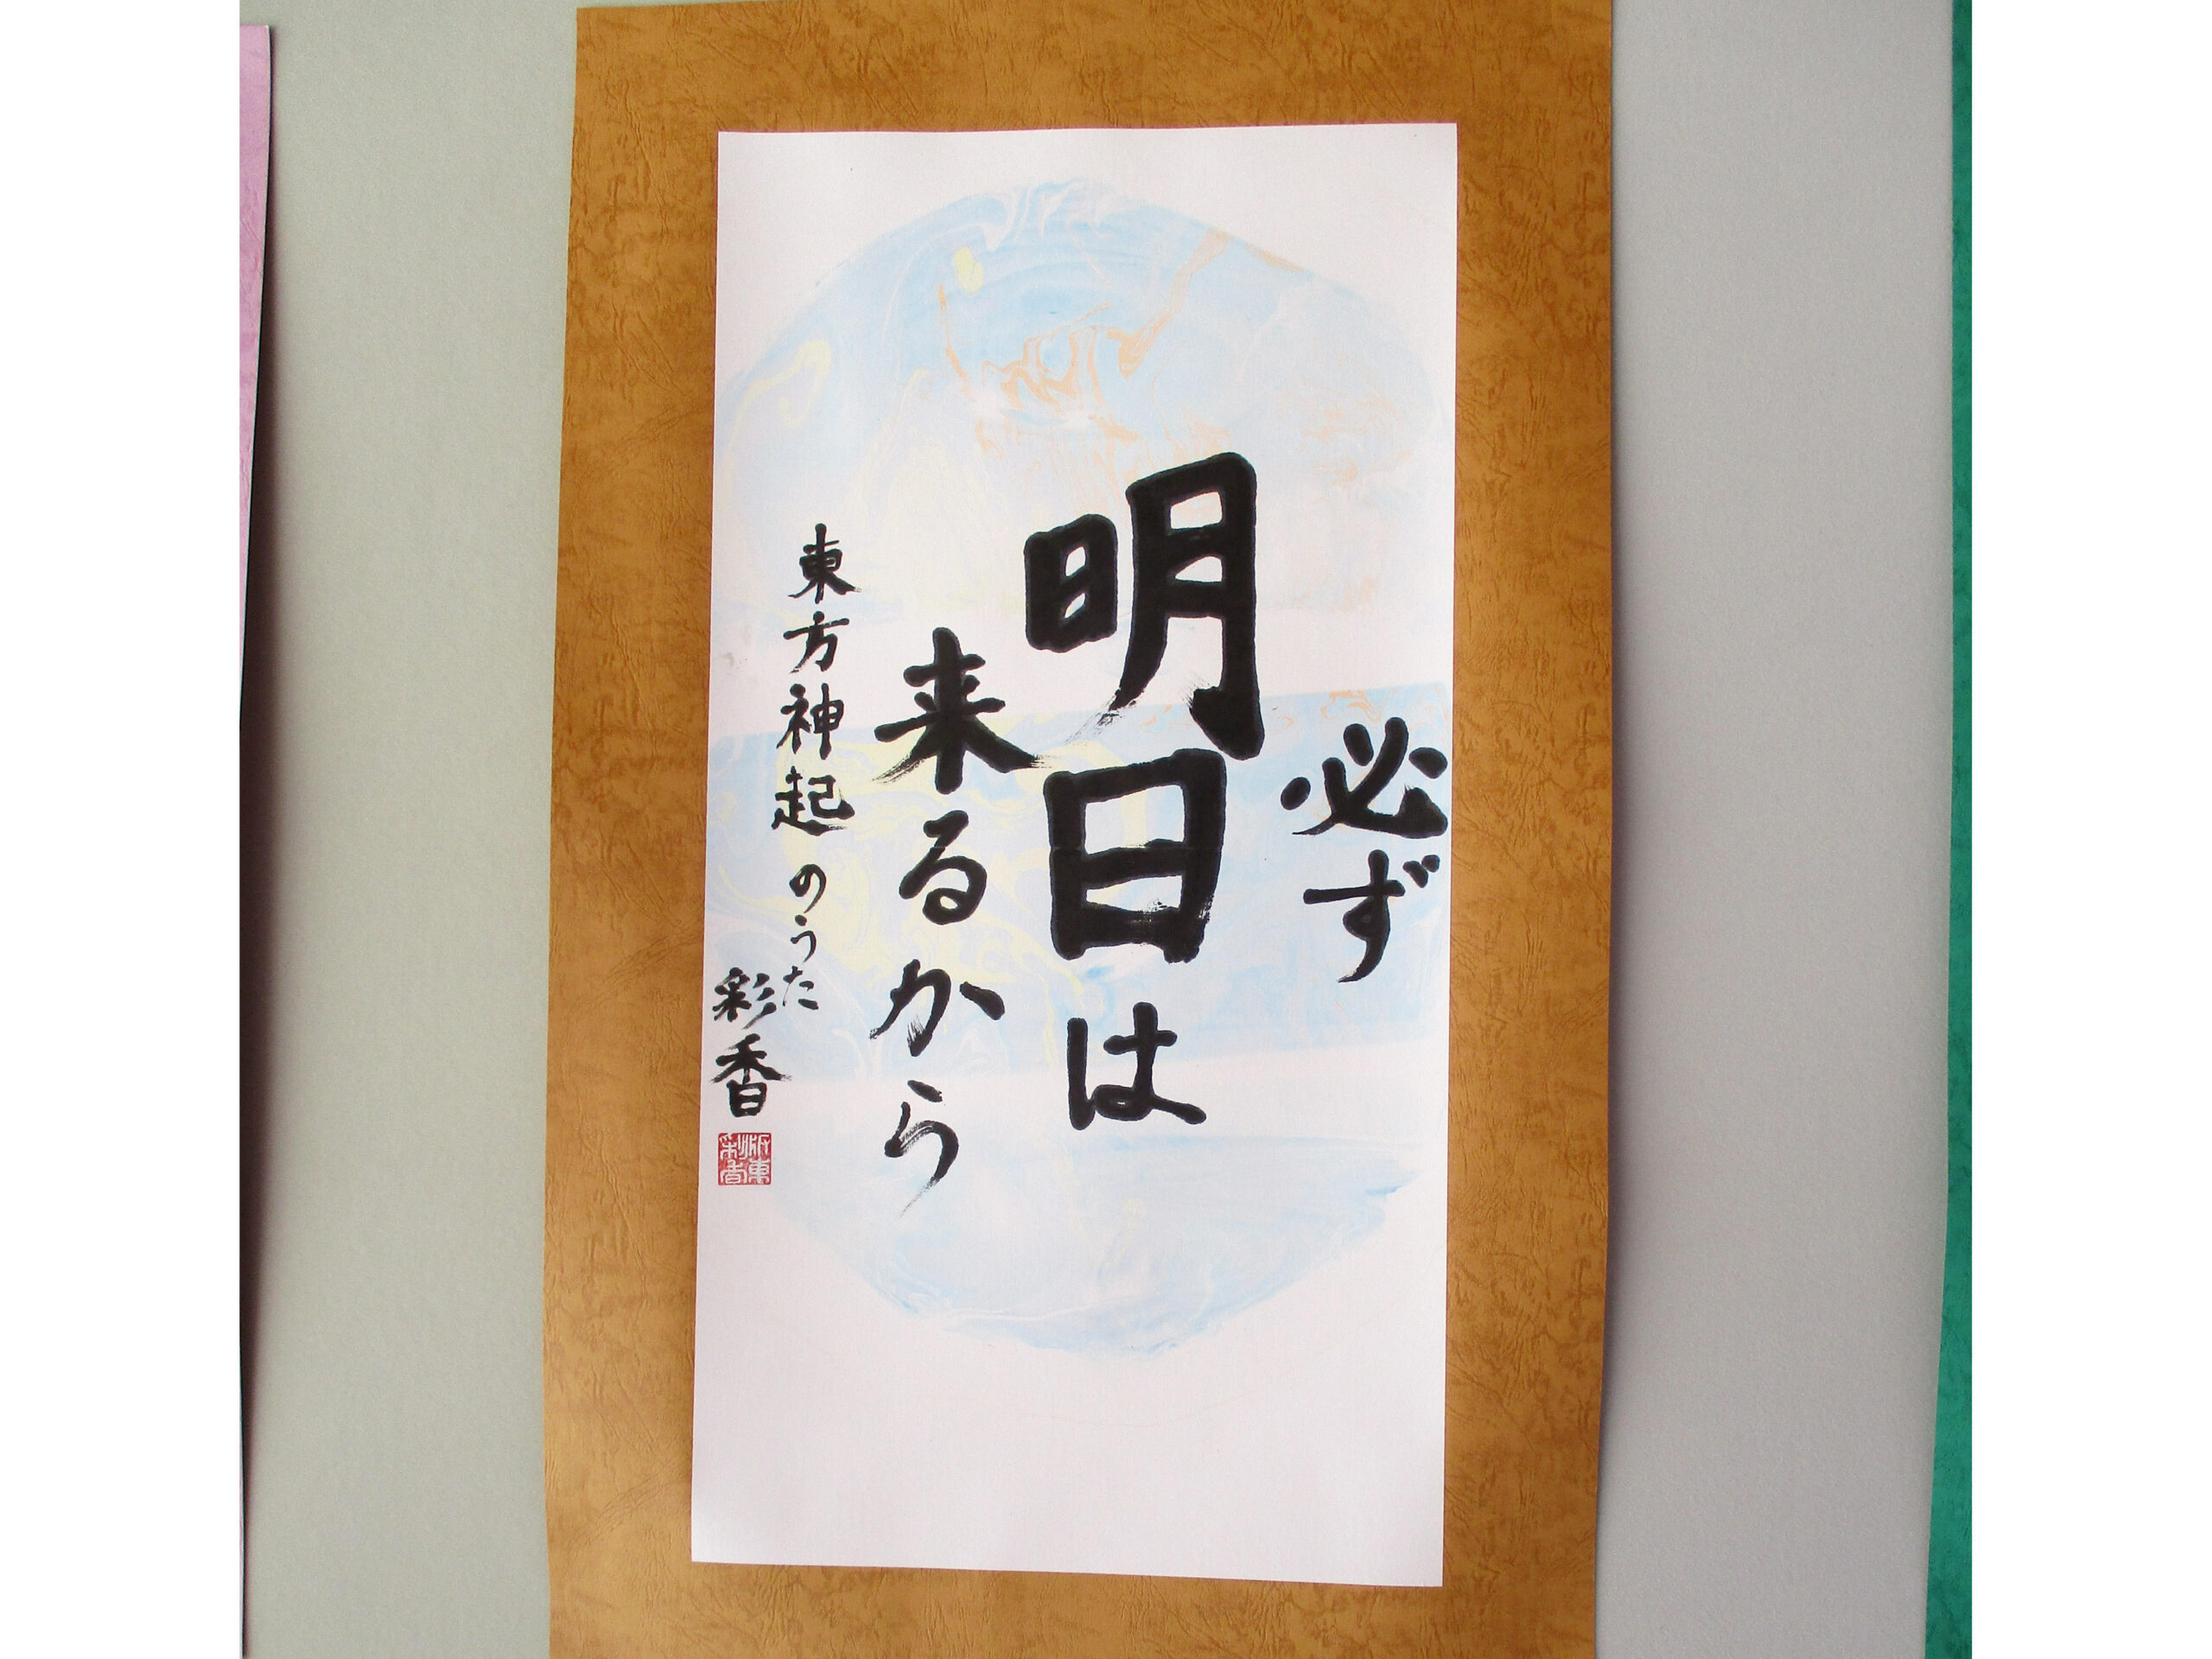 必ず
明日は
来るから
東方神起のうた
彩香